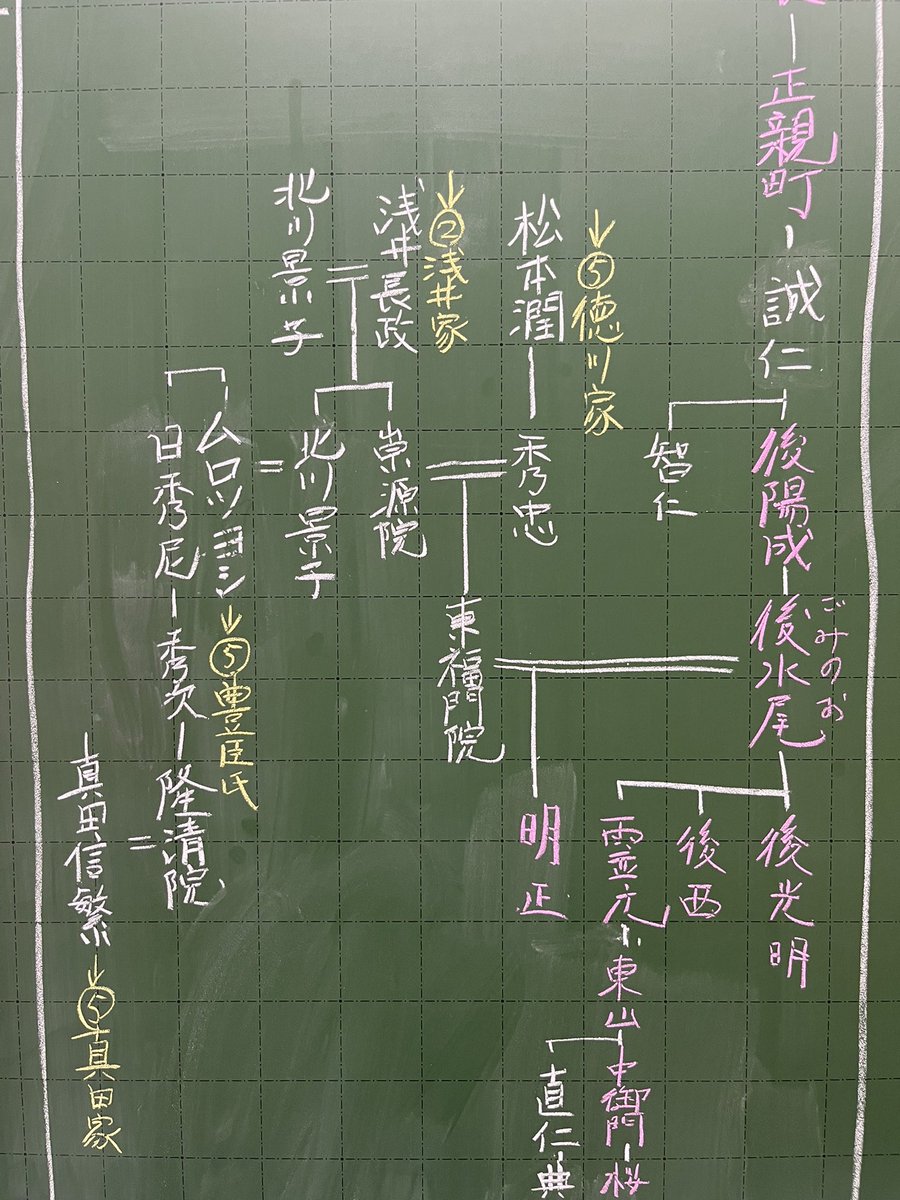 正親町
誠仁
智仁
後陽成
後水尾
ごみのお
後光明
後西
霊元
東山
中御門
桜
直仁
典
明正
↓⑤徳川家
松本潤
秀忠
東福門院
↓②浅井家
浅井長政
北川景子
崇源院
北川景子
ムロツヨシ
↓⑤豊臣氏
日秀尼
秀次
隆清院
真田信繁
↓⑤真田家